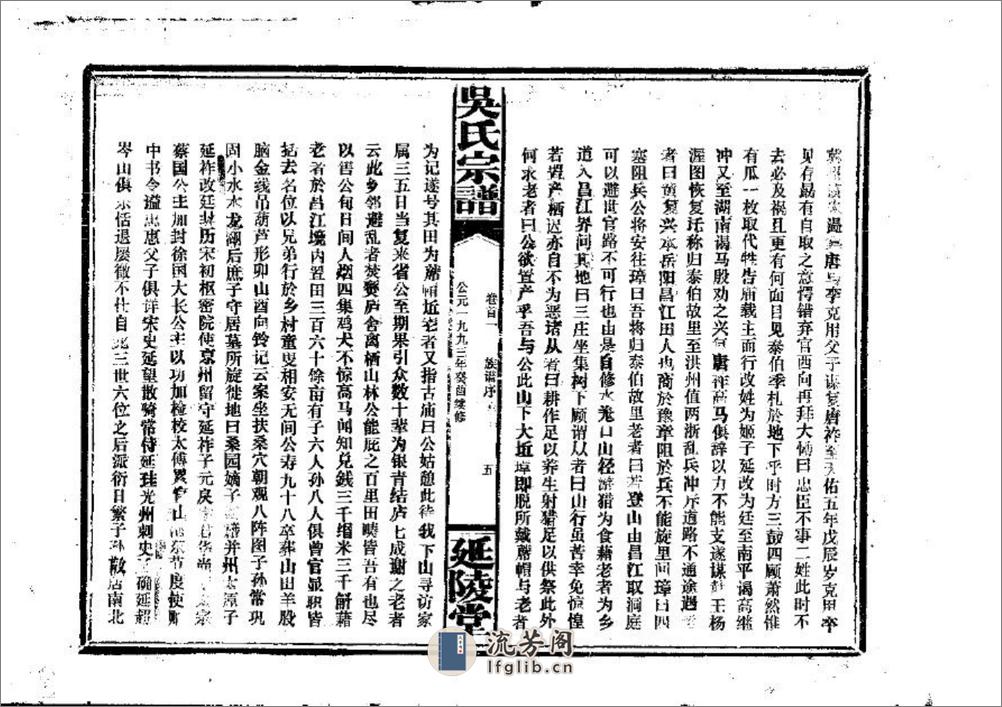 见存勗有自取之意愕错弃官西向再拜大恸曰忠臣不事二姓此时不
去必及祸且更有何面目见泰伯季札於地下乎时方三鼓四顾萧然惟
有瓜一枚取代牲告庙载主而行改姓为姬子延改为廷至南平谒高继
冲又至湖南谒马殷劝之兴复唐祚高马俱辞以力不能支遂谋 王杨
渥图恢复 坛称归泰伯故里至洪州值两浙乱兵冲斥道路不通途遇
者曰 复兴 岳阳昌江田人也商於豫章阻於兵不能旋里问璋曰四
塞阻兵公将安往璋曰吾将归泰伯故里老者曰若登山由昌江取洞庭
可以避世官路不可行也由是自修水 口山径游猎为食藉老者为乡
道入昌江界问其地曰三庄坐集树下顾谓从者曰山行虽苦幸免惊惶
若置产栖迟亦自不为恶诸从者曰耕作足以养生射猎足以供祭此外
何求老者曰公欲置产乎吾与公此山下大坵璋即脱所戴鹰帽与老者
吳氏宗譜
卷首一 族谱序 五
公元一九九三年癸酉续修
延陵堂
为记遂号其田为 帽坵老者又指古庙曰公姑憩此待我下山寻访家
属三五日当复来省公至期果引众数十辈为银青结庐七成谢之老者
云此乡邻避乱者焚爨庐舍离栖山林公能庇之百里田畴皆吾有也尽
以售公旬日间人烟四集鸡犬不惊高马闻知兑钱三千缗米三千斛藉
老者於昌江境内置田三百六十馀亩有子六人孙八人俱曾官显职皆
括去名位以兄弟行於乡村童叟相安无间公寿九十八卒葬山田羊股
脑金线吊葫芦形卯山酉向铃记云案坐扶桑穴朝观八阵图子孙常巩
固小水水龙湖后庶子守居墓所旋徙地曰桑园嫡子 并州太原子
延祚改廷 历宋初枢密院使京州留守延祚子元扆
蔡国公主加封徐国大长公主以功加检校太傅 山 东节度使
中书令谥忠惠父子俱详宋史延望散骑常侍延珪光州刺史 确延超
岑山俱永恬退屡徵不仕自此三世六位之后派衍日繁子孙散居南北
流芳阁
lfglib.cn